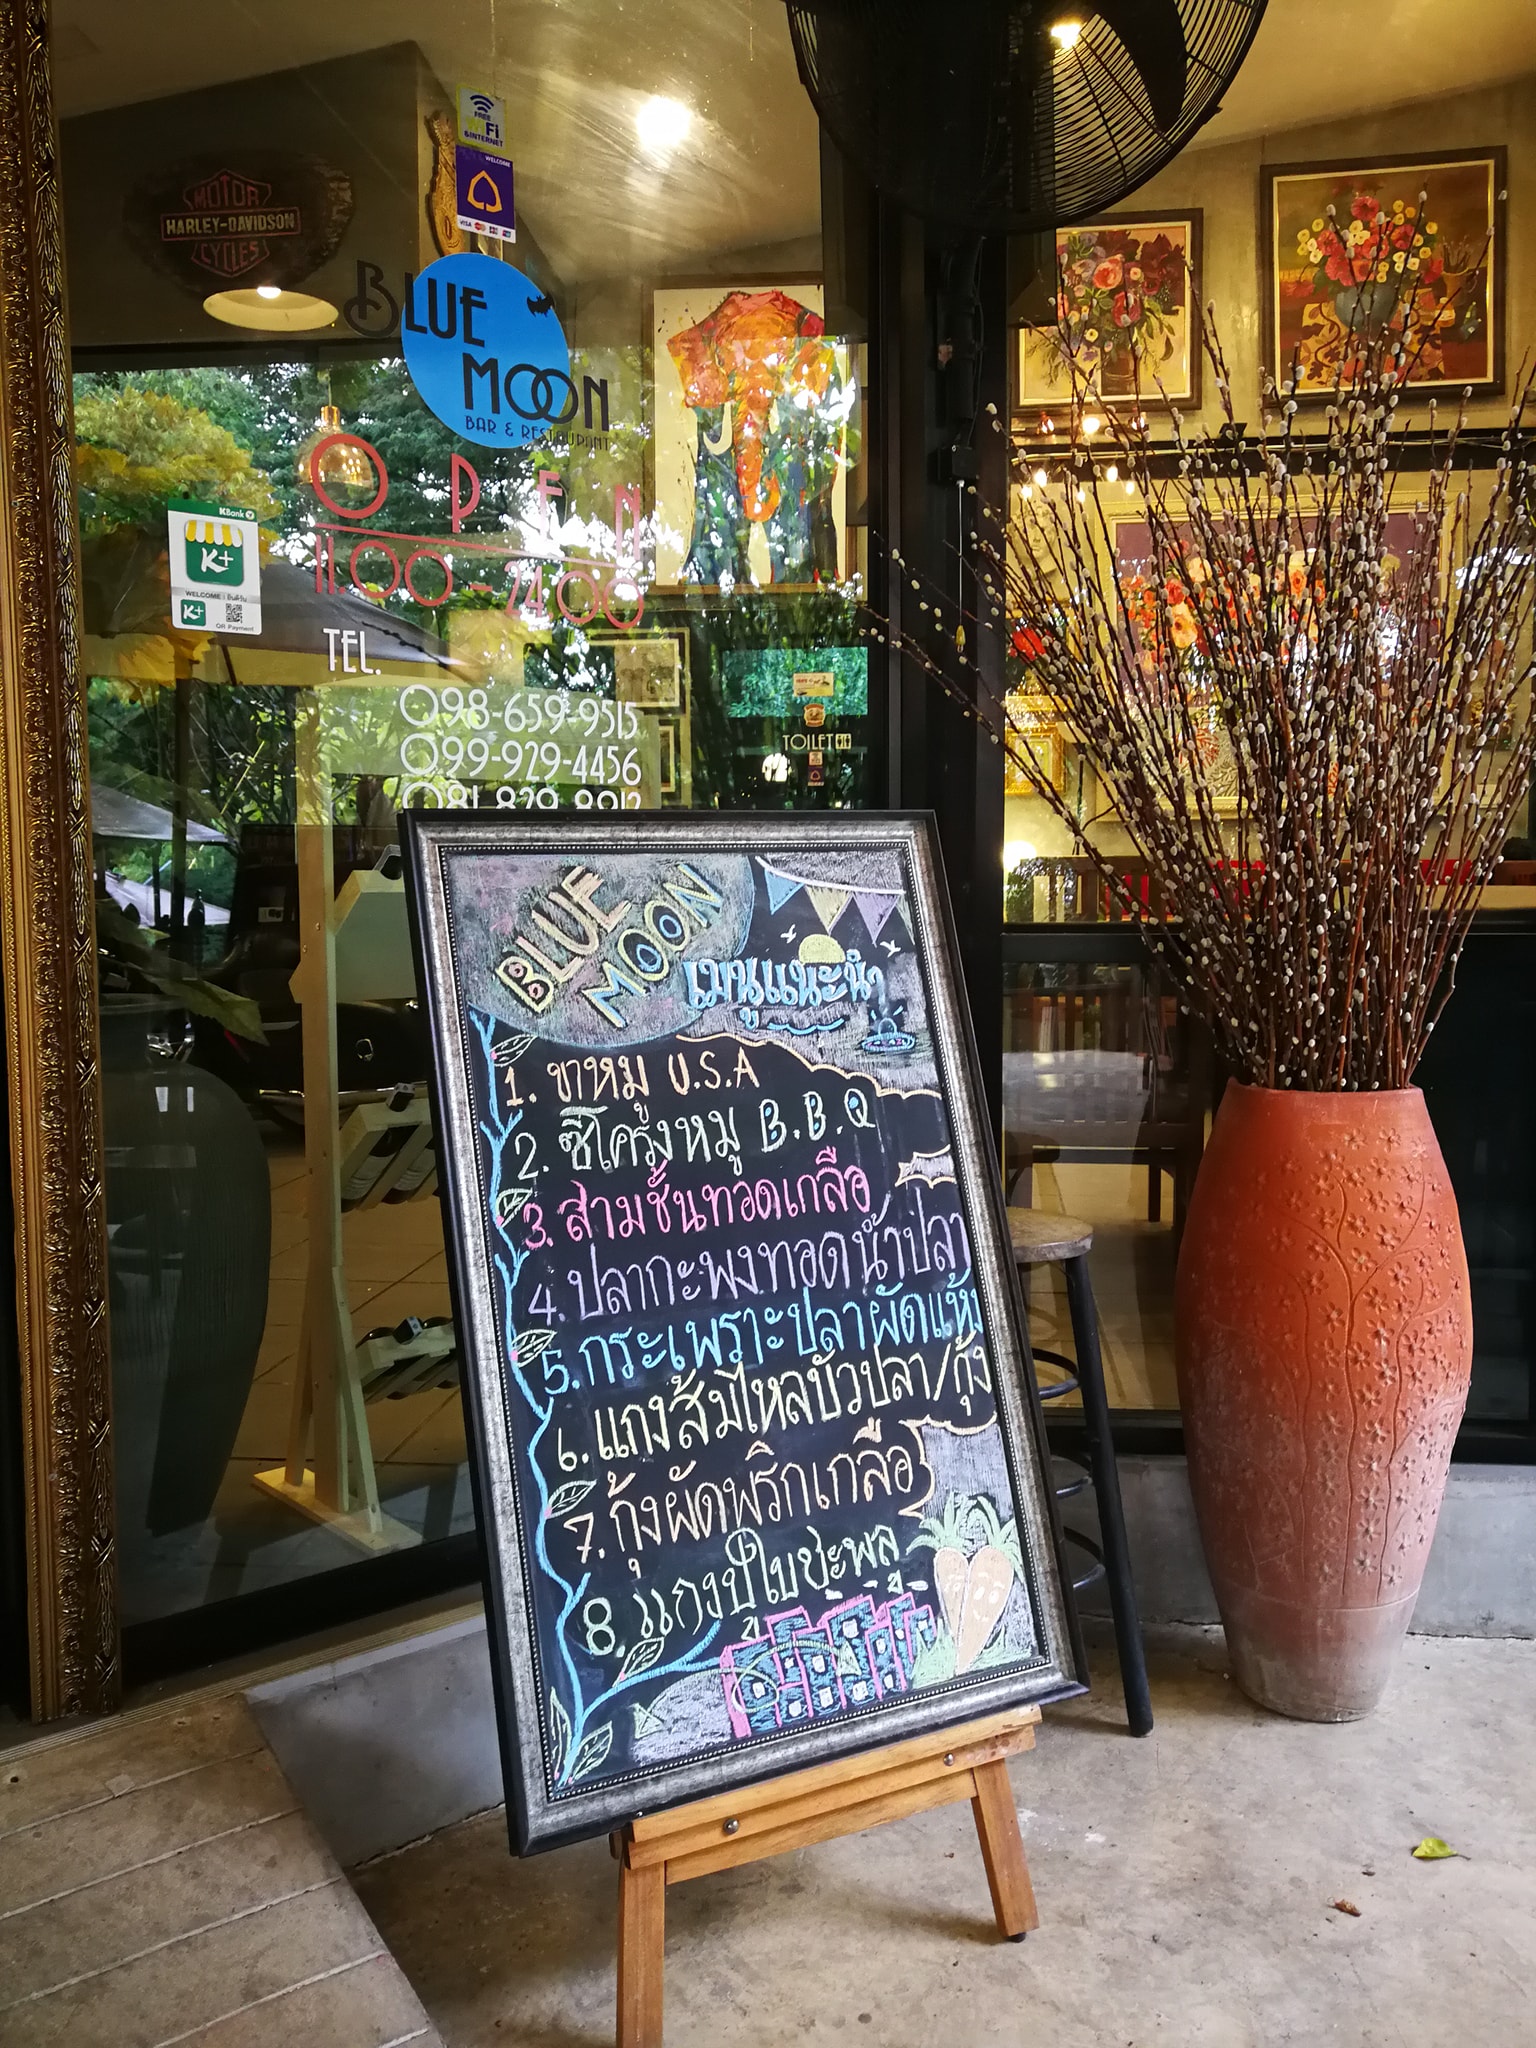 FREE
WiFi
& INTERNET
WELCOME
VISA
MOTOR
HARLEY-DAVIDSON
CYCLES
BLUE
MOON
BAR & RESTAURANT
OPEN
11.00-24.00
KBank
K+
WELCOME : ยินดีรับ
K+
QR Payment
TEL.
098-659-9515
099-929-4456
081-829-8912
TOILET
BLUE
MOON
เมนูแนะนำ
1. ขาหมู U.S.A
2. ซี่โครงหมู B.B.Q
3. สามชั้นทอดเกลือ
4. ปลากะพงทอดน้ำปลา
5. กระเพราะปลาผัดแห้ง
6. แกงส้มไหลบัวปลา/กุ้ง
7. กุ้งผัดพริกเกลือ
8. แกงปูใบชะพลู